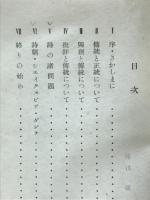 目次
I 序・さかしまに
II 傳統と正統について
III 獨創と傳統について
IV 批評と傳統について
V 詩の諸問題
VI 詩劇・シエイクスピア・ダンテ
VII 終りの始め